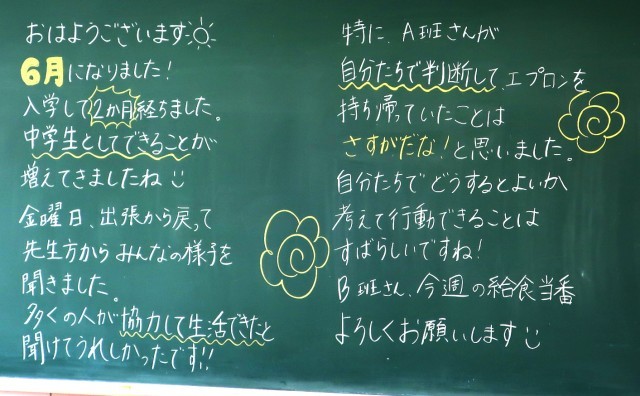 おはようございます
6月になりました!
入学して2か月経ちました。
中学生としてできることが
増えてきましたね
金曜日、出張から戻って
先生方からみんなの様子を
聞きました。
多くの人が協力して生活できたと
聞けてうれしかったです!!
特に、A班さんが
自分たちで判断して、エプロンを
持ち帰っていたことは
さすがだな!と思いました。
自分たちでどうするとよいか
考えて行動できることは
すばらしいですね!
B班さん、今週の給食当番
よろしくお願いします